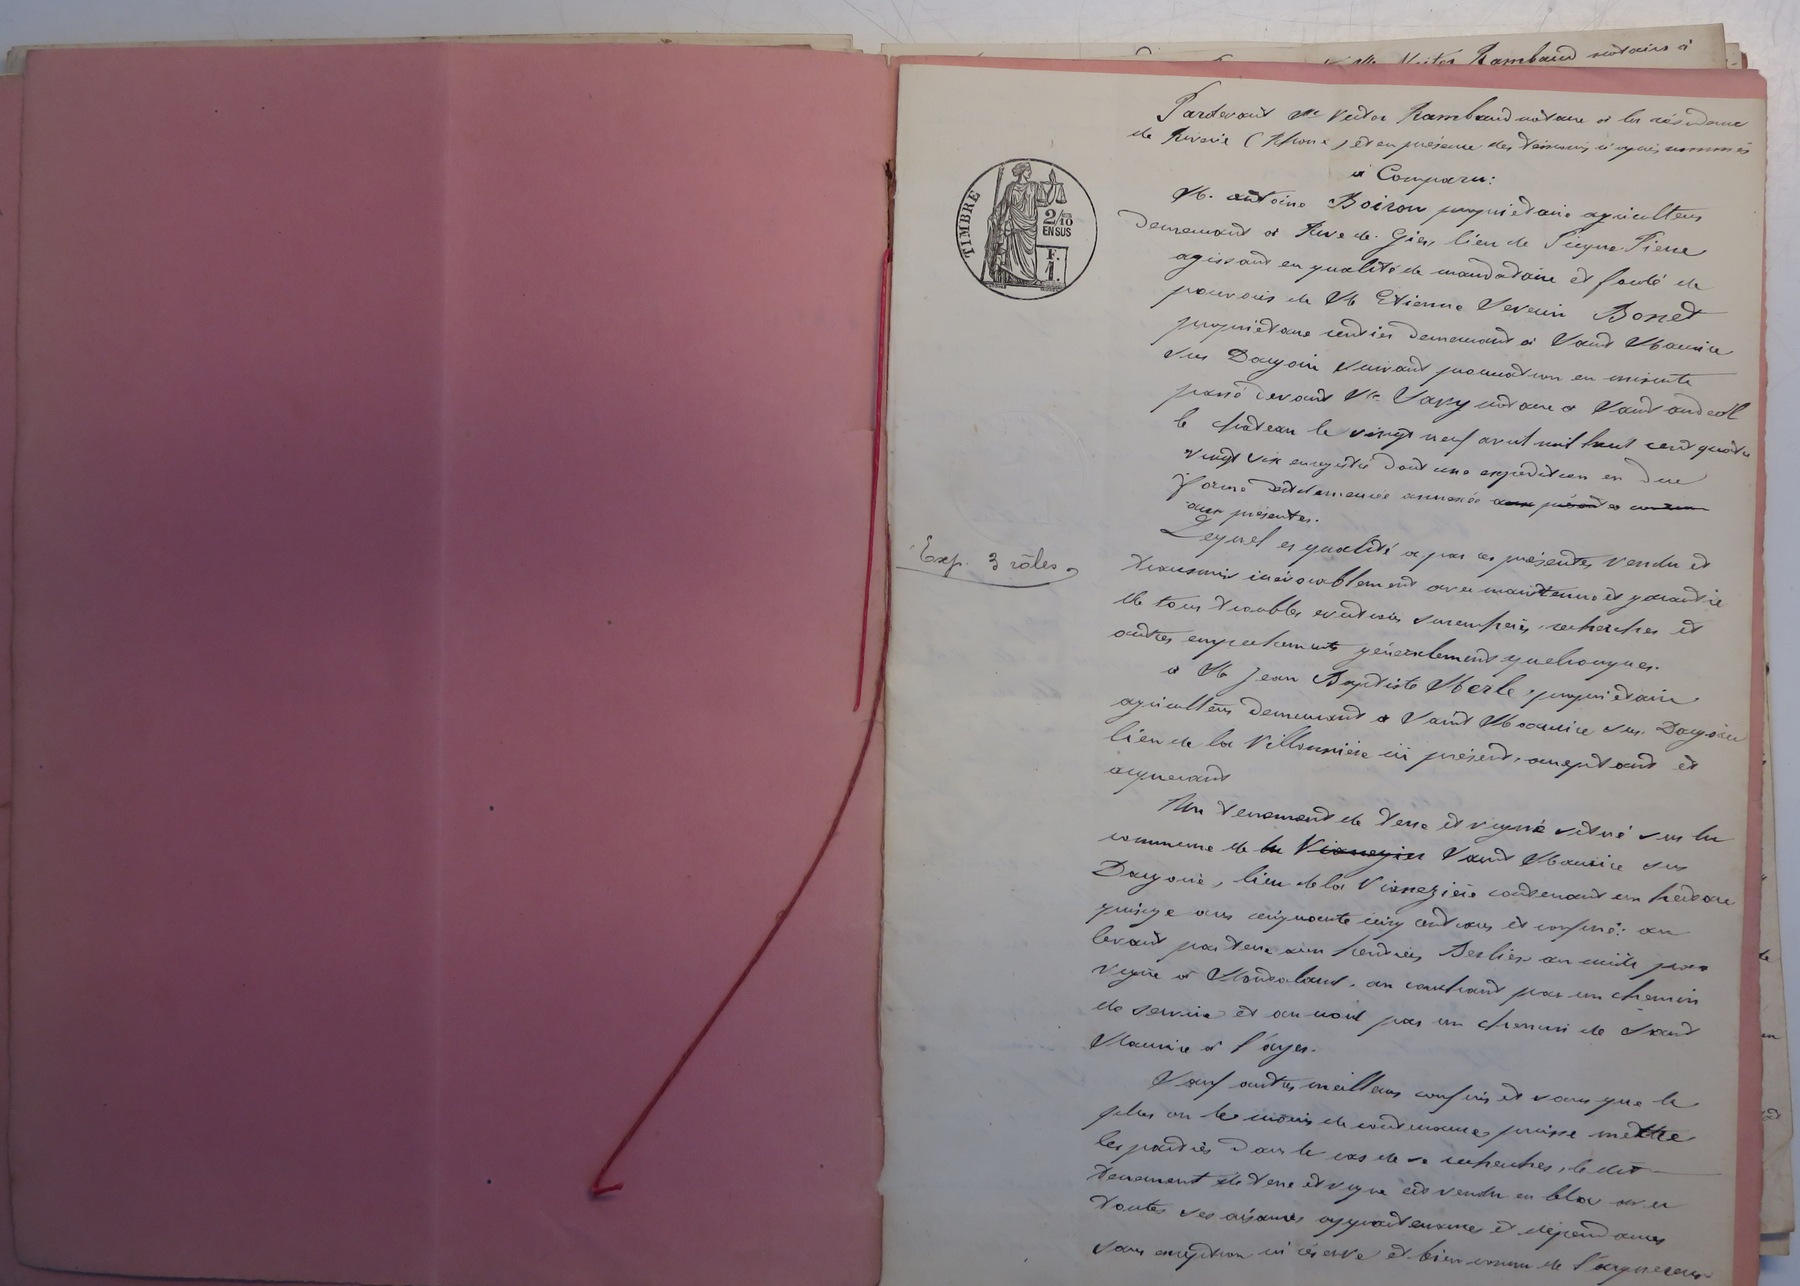 Rambaud notaire à
Pardevant Me Victor Rambaud notaire à la résidence
de Riverie (Rhône) et en présence des témoins ci après nommés
a Comparu:
TIMBRE
2/10
EN SUS
F.
1.
M. antoine Boiron propriétaire agriculteur
demeurant à Rive de Gier, lieu de Pierre
agissant en qualité de mandataire et fondé de
pouvoirs de M Etienne Severin Bonet
propriétaire rentier demeurant à Saint Maurice
sur Dargoire suivant procuration en minute
passé devant Me Savy notaire à Saint andéol
le château le vingt neuf avril mil huit cent quatre
vingt six enregistré dont une expédition en due
forme est demeurée annexée aux présentes
aux présentes.
Exp. 3 rôles
Lequel es qualité a par ces présentes vendu et
transmis irrévocablement avec maintenue et garantie
de tous troubles evictions surenchères, recherches et
autres empechements généralement quelconques.
à M Jean Baptiste Merle, propriétaire
agriculteur demeurant à Saint Maurice sur Dargoire
lieu de la Villonnière ici présent, acceptant et
acquerant
Un tenement de terre et vigne situé sur la
commune de la Saint Maurice sur
Dargoire, lieu de la Viannezière contenant un hectare
quinze ares cinquante cinq centiares et confiné: au
levant par terre aux héritiers Berlier au midi par
vigne à, au couchant par un chemin
de service et au nord par un chemin de Saint
Maurice à l'ayer.
Sauf autres meilleurs confins et sans que le
plus ou le moins de contenance puisse mettre
les parties dans le cas de se rechercher, le dit
tenement de terre et vigne est vendu en bloc avec
toutes ses aisances appartenances et dépendances
sans exception ni réserve et bien connu de l'acquereur